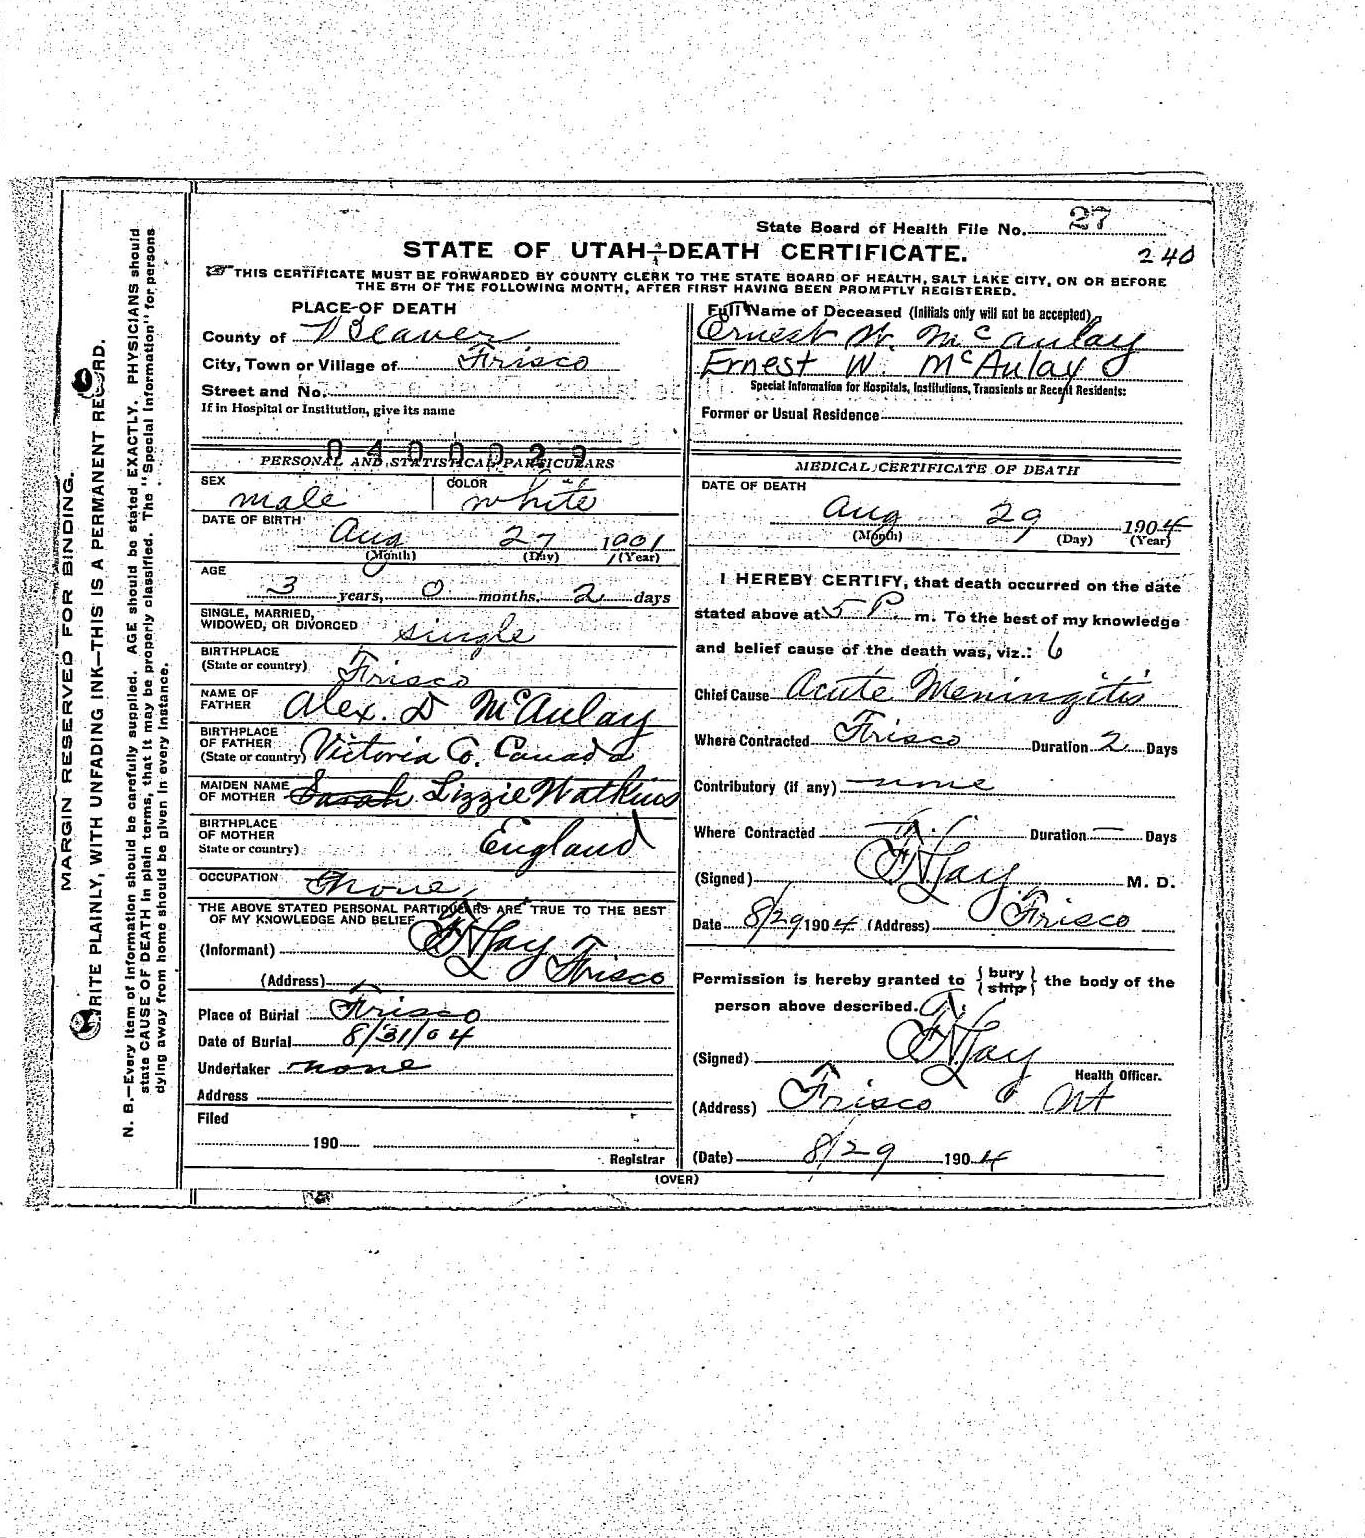 MARGIN RESERVED FOR BINDING.
WRITE PLAINLY, WITH UNFADING INK—THIS IS A PERMANENT RECORD.
N. B.—Every item of information should be carefully supplied. AGE should be stated EXACTLY. PHYSICIANS should
state CAUSE OF DEATH in plain terms, that it may be properly classified. The "Special Information" for persons
dying away from home should be given in every instance.
State Board of Health File No. 27
240
STATE OF UTAH—DEATH CERTIFICATE.
THIS CERTIFICATE MUST BE FORWARDED BY COUNTY CLERK TO THE STATE BOARD OF HEALTH, SALT LAKE CITY, ON OR BEFORE
THE 5TH OF THE FOLLOWING MONTH, AFTER FIRST HAVING BEEN PROMPTLY REGISTERED.
PLACE OF DEATH
County of Beaver
City, Town or Village of Frisco
Street and No.
If in Hospital or Institution, give its name
040029
PERSONAL AND STATISTICAL PARTICULARS
SEX male COLOR white
DATE OF BIRTH Aug 27 1901
(Month) (Day) (Year)
AGE 3 years, 0 months, 2 days
SINGLE, MARRIED,
WIDOWED, OR DIVORCED single
BIRTHPLACE
(State or country) Frisco
NAME OF
FATHER Alex. D McAulay
BIRTHPLACE
OF FATHER
(State or country) Victoria Co. Canada
MAIDEN NAME
OF MOTHER Sarah Lizzie Watkins
BIRTHPLACE
OF MOTHER
State or country) England
OCCUPATION none
THE ABOVE STATED PERSONAL PARTICULARS ARE TRUE TO THE BEST
OF MY KNOWLEDGE AND BELIEF
(Informant)
(Address) Frisco
Place of Burial Frisco
Date of Burial 8/31/04
Undertaker none
Address
Filed
190
Registrar
Full Name of Deceased (Initials only will not be accepted)
Ernest W. McAulay
Ernest W. McAulay
Special Information for Hospitals, Institutions, Transients or Recent Residents:
Former or Usual Residence
MEDICAL CERTIFICATE OF DEATH
DATE OF DEATH
Aug 29 1904
(Month) (Day) (Year)
I HEREBY CERTIFY, that death occurred on the date
stated above at 5 P. m. To the best of my knowledge
and belief cause of the death was, viz.: 6
Chief Cause Acute Meningitis
Where Contracted Frisco Duration 2 Days
Contributory (if any) none
Where Contracted — Duration — Days
(Signed) M. D.
Date 8/29 1904 (Address) Frisco
Permission is hereby granted to { bury ship } the body of the
person above described.
(Signed)
Health Officer.
(Address) Frisco Ut
(Date) 8/29 1904
(OVER)